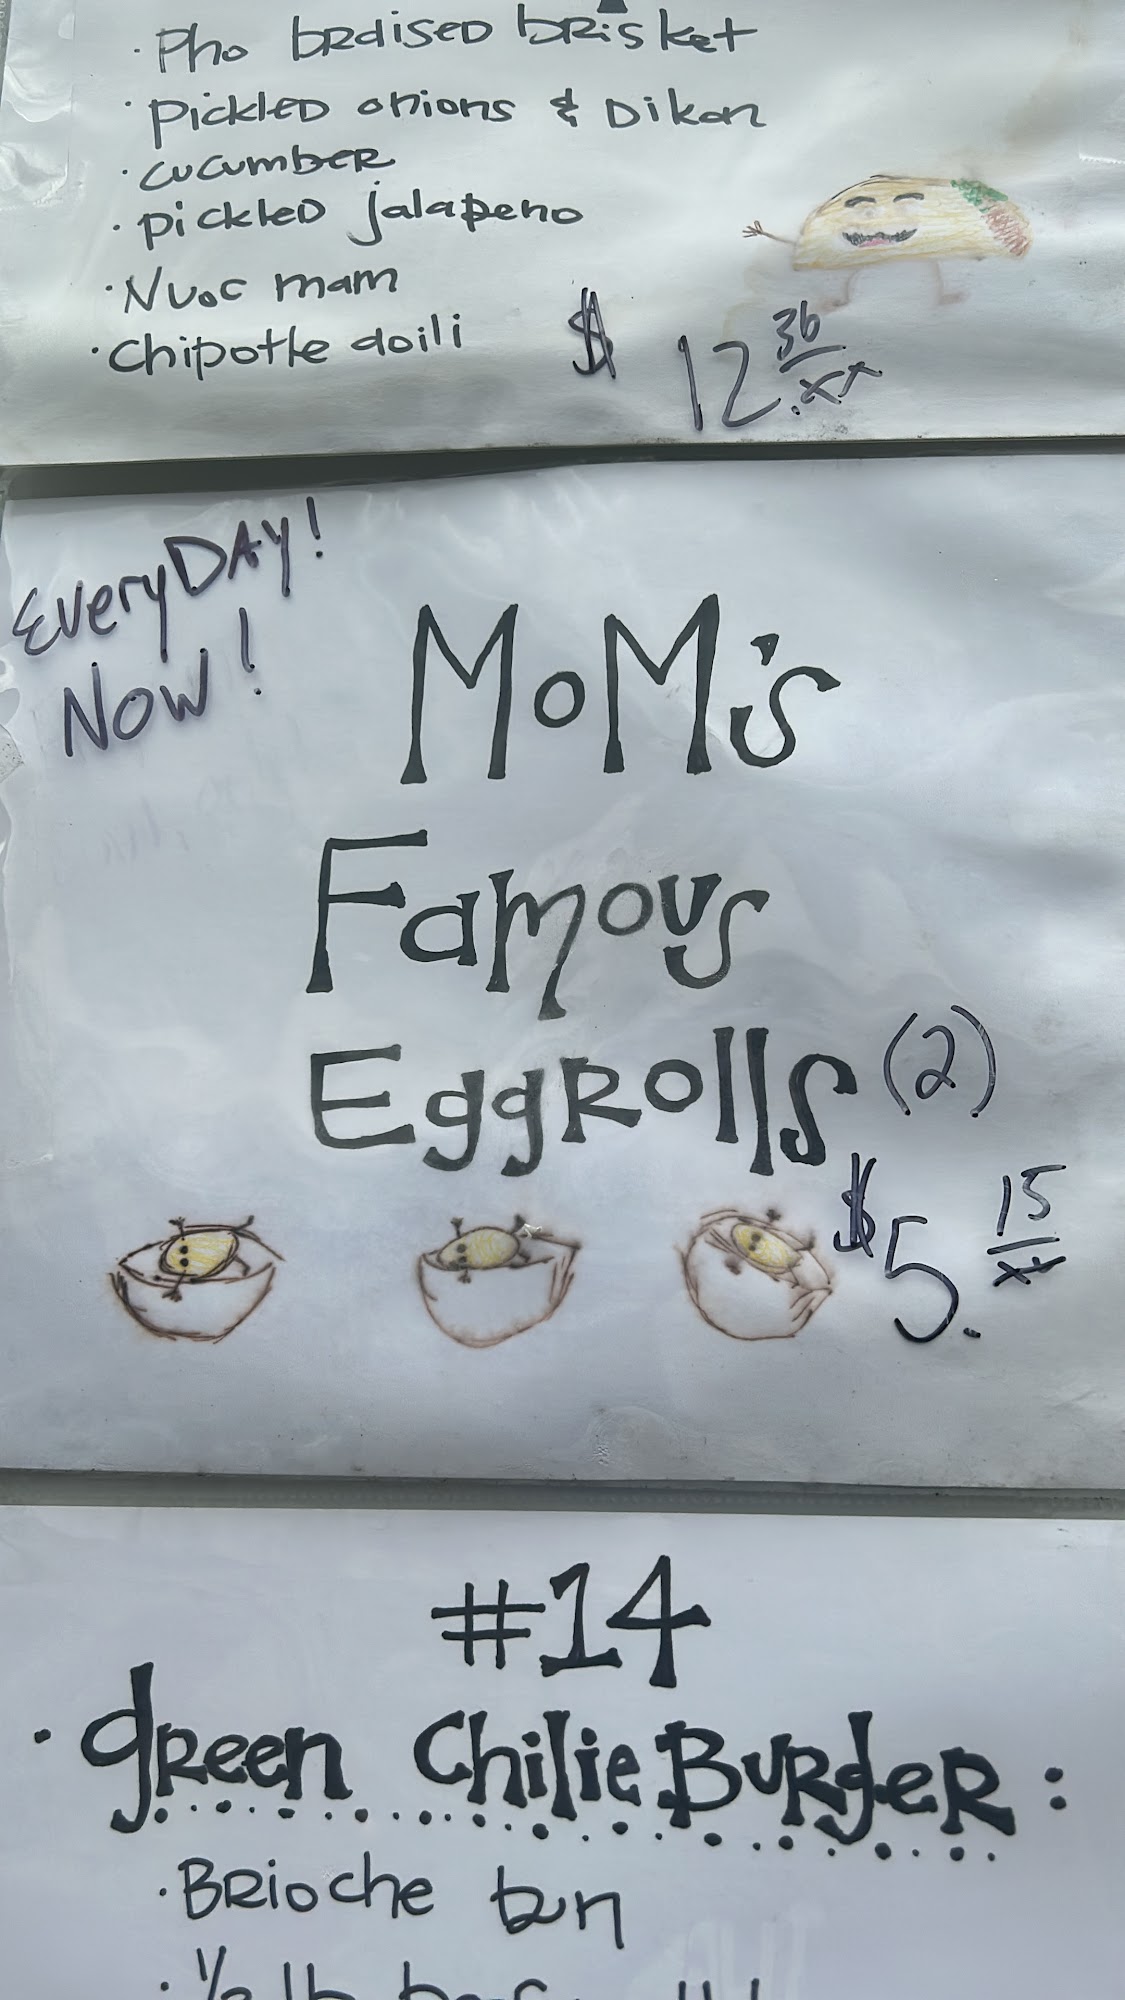 · Pho braised brisket
· pickled onions & Dikon
· cucumber
· pickled jalapeno
· Nuoc mam
· Chipotle aoili
$ 12.36/xx
EveryDAY!
NOW!
MoM's
Famous
EggRolls (2)
$5.15/xx
#14
· green Chilie BuRgeR:
· BRioche bun
· 1/2 lb